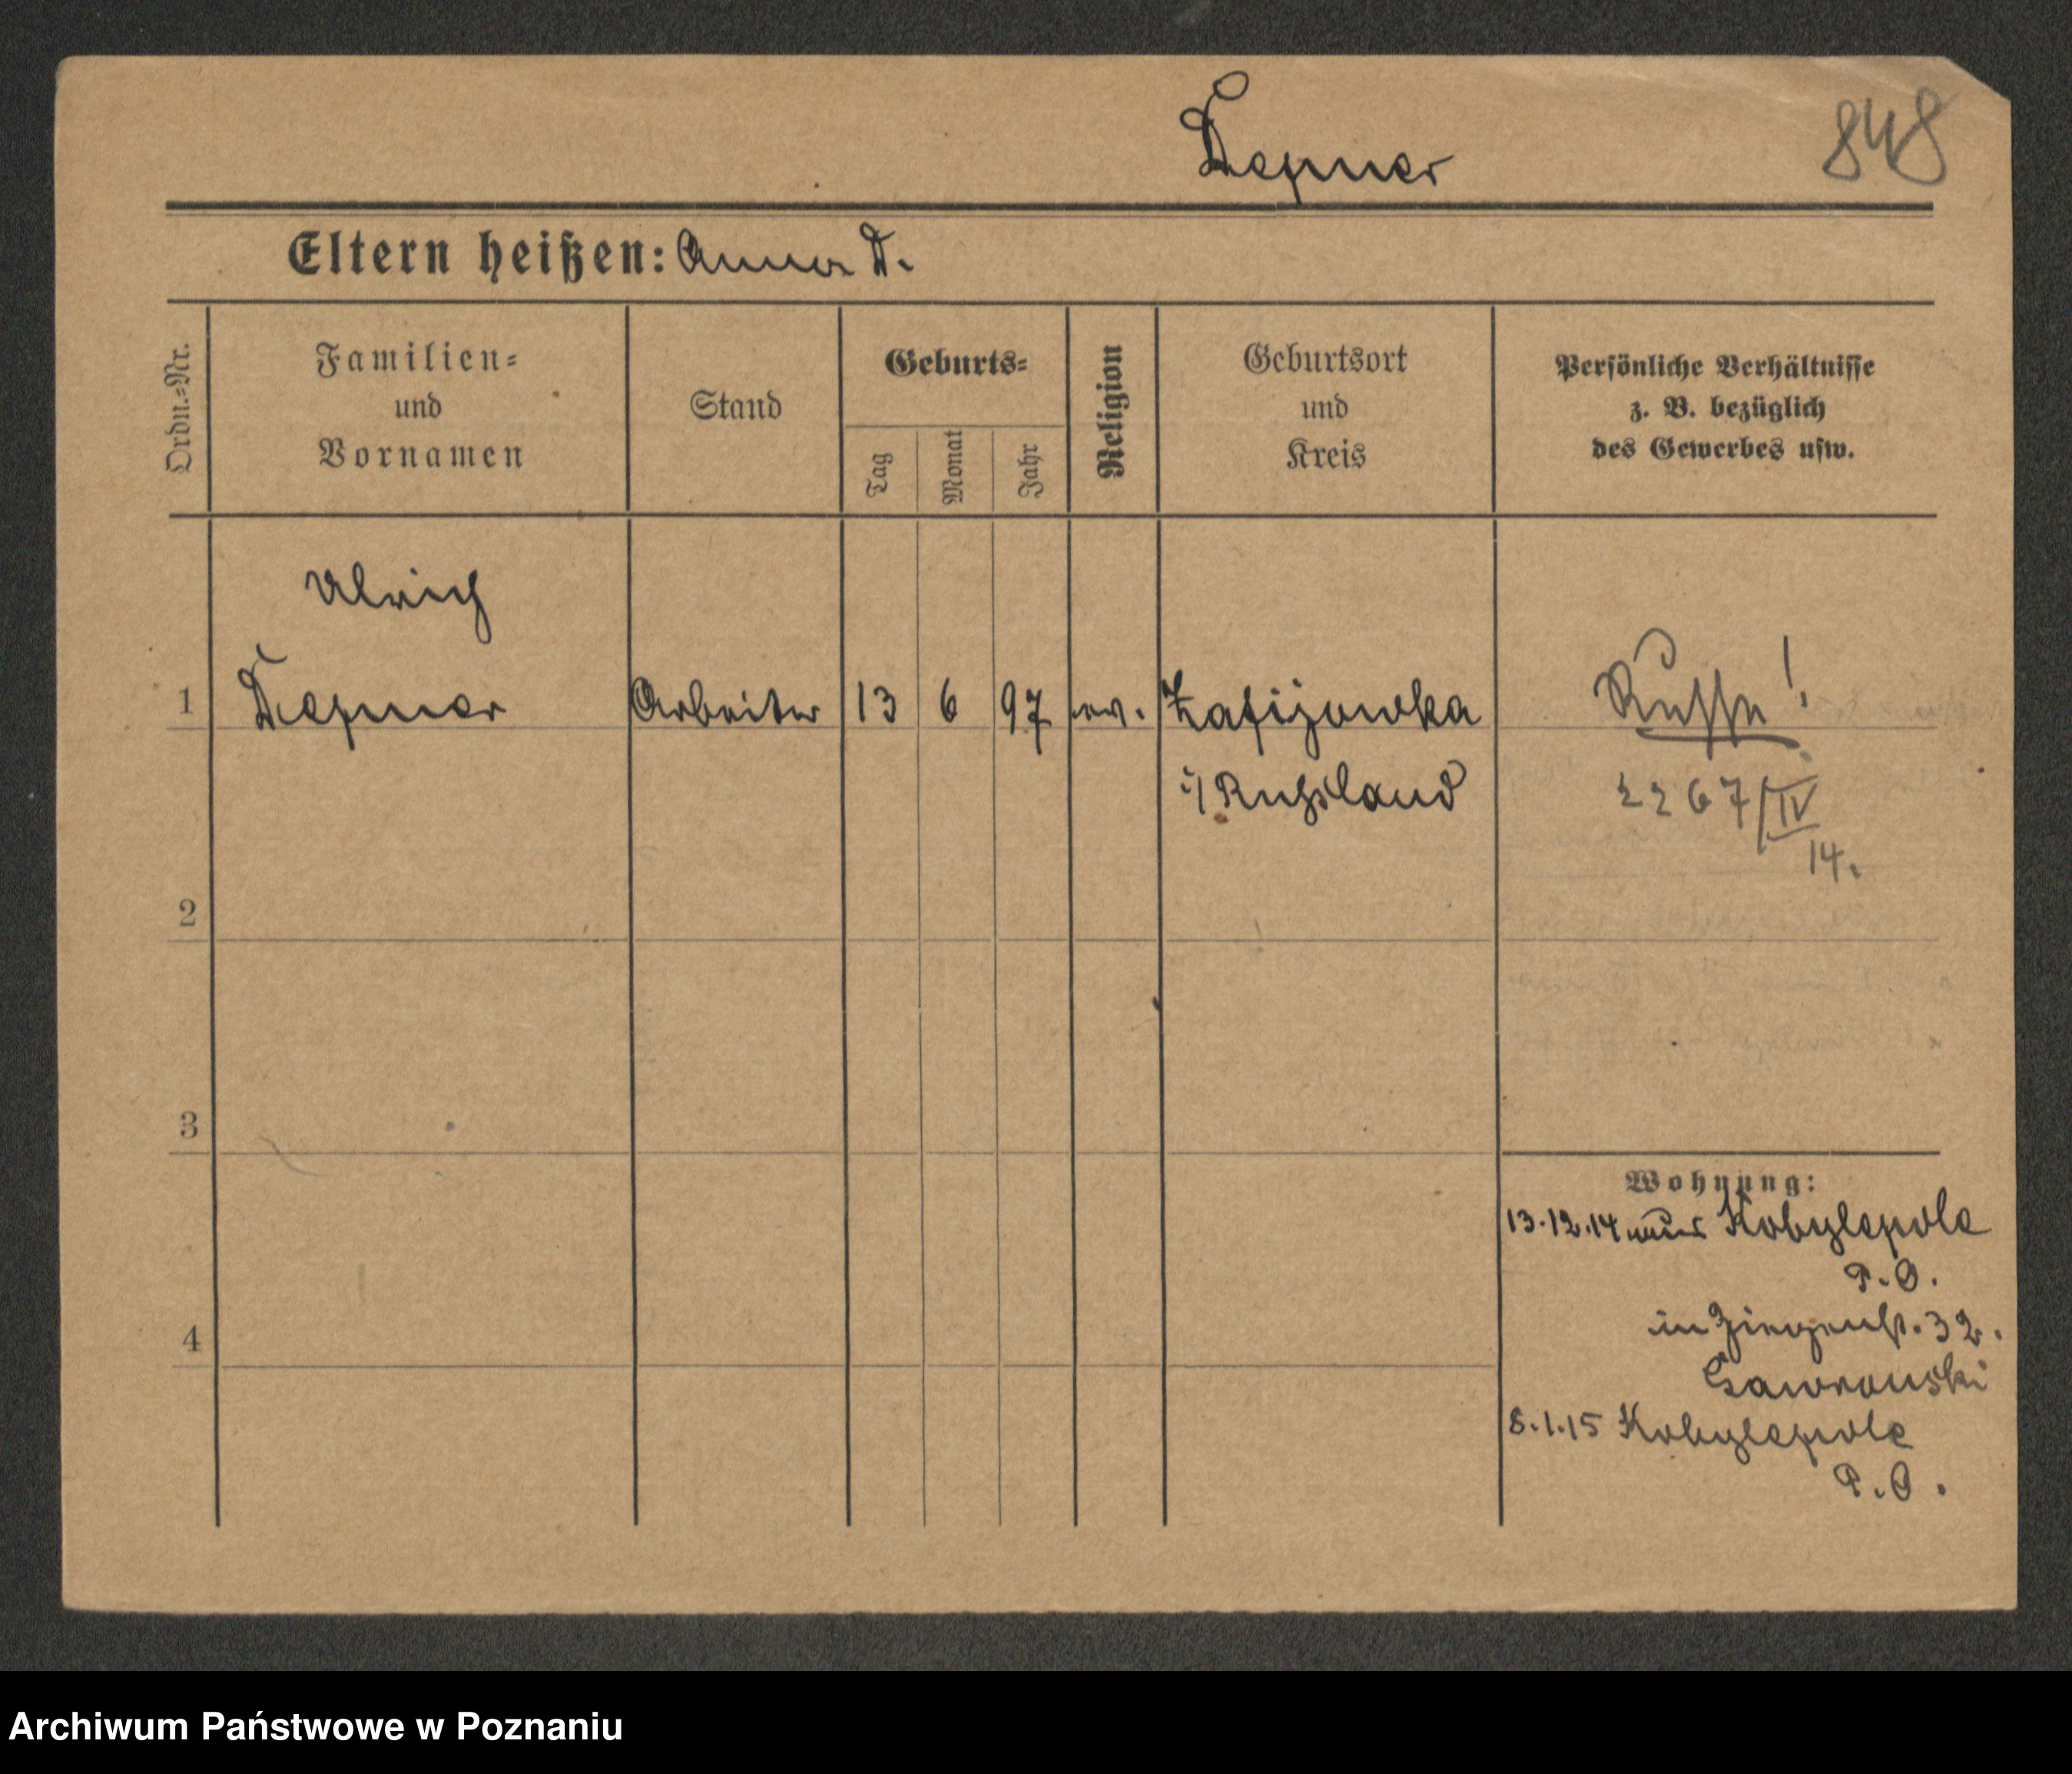 Depner
848
Eltern heißen: Anna D.
Ordn.-Nr.
Familien-
und
Vornamen
Stand
Geburts-
Tag
Monat
Jahr
Religion
Geburtsort
und
Kreis
Persönliche Verhältnisse
z. B. bezüglich
des Gewerbes usw.
Ulrich
1 Depner Arbeiter 13 6 97 ev. Zofijowka Russe!
i/ Russland
2267/IV
14.
2
3
4
Wohnung:
13.12.14 Kobylepole
P.O.
in Ziegenstr. 32.
Gawronski
8.1.15 Kobylepole
P.O.
Archiwum Państwowe w Poznaniu